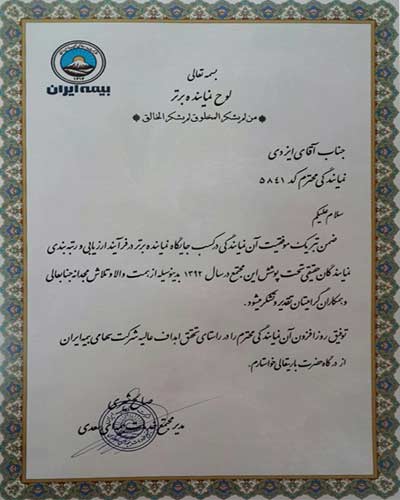 بیمه ایران
بسمه تعالی
لوح نماینده برتر
من لم یشکر المخلوق لم یشکر الخالق
جناب آقای ایزدی
نمایندگی محترم کد ۵۸۴۱
سلام علیکم
ضمن تبریک موفقیت آن نمایندگی در کسب جایگاه نماینده برتر در فرآیند ارزیابی و رتبه بندی
نمایندگان حقیقی تحت پوشش این مجتمع در سال ۱۳۹۲ بدینوسیله از همت والا و تلاش مجدانه جنابعالی
و همکاران گرامیتان تقدیر و تشکر میشود.
توفیق روز افزون آن نمایندگی محترم را در راستای تحقق اهداف عالیه شرکت سهامی بیمه ایران
از درگاه حضرت باریتعالی خواستارم.
مدیر مجتمع خدمات بیمه ای سعدی